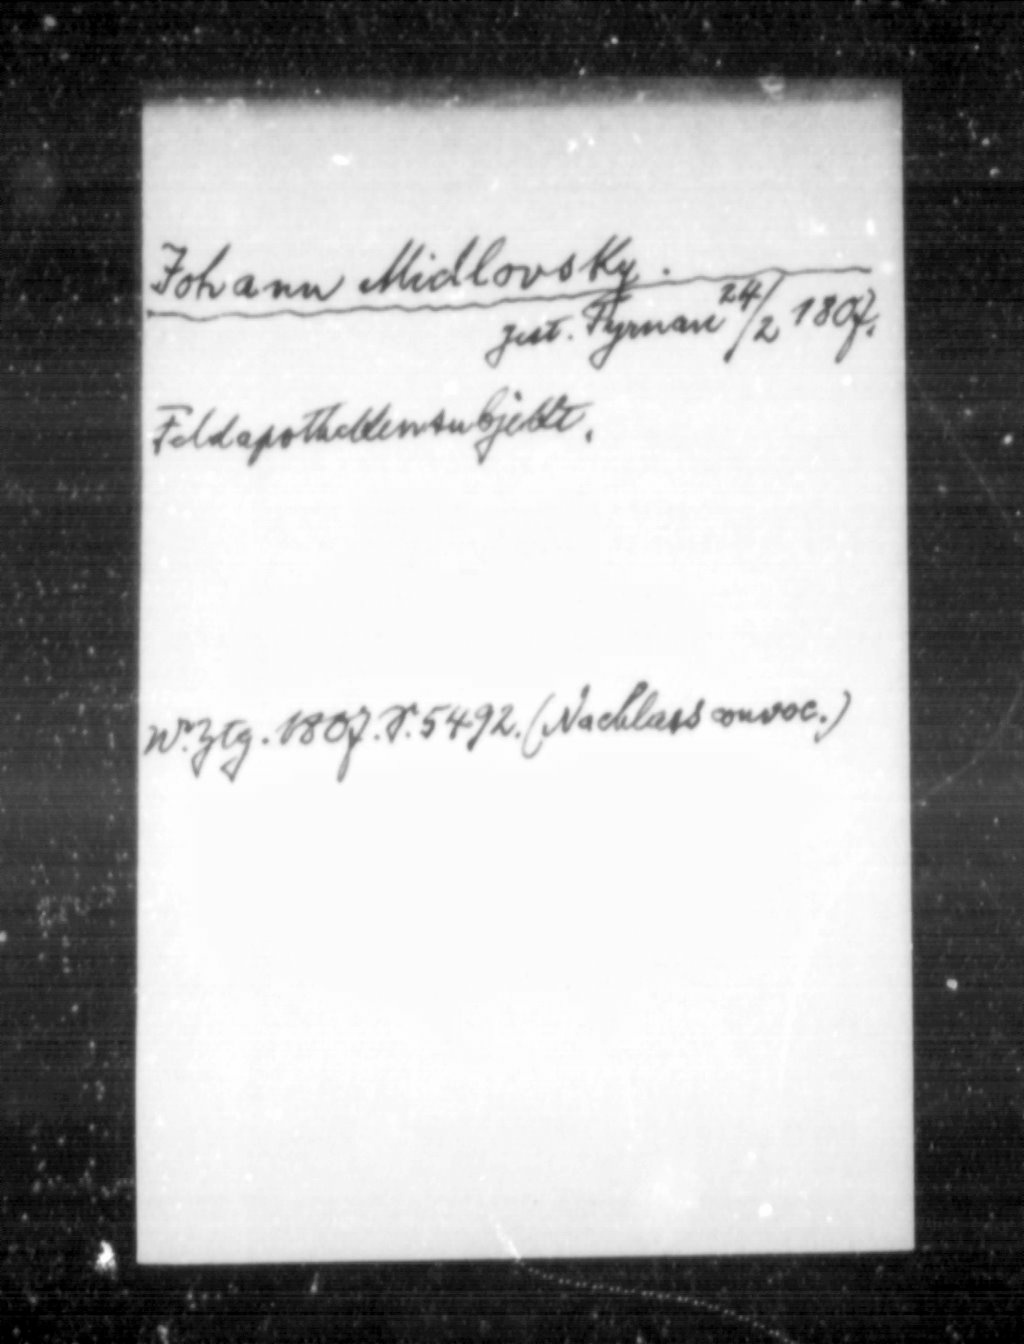 Johann Midlovsky.
gest. Tyrnau 24/2 1807.
Feldapothekensubjekt.
Wr. Ztg. 1807. S. 5492. (Nachlassconvoc.)